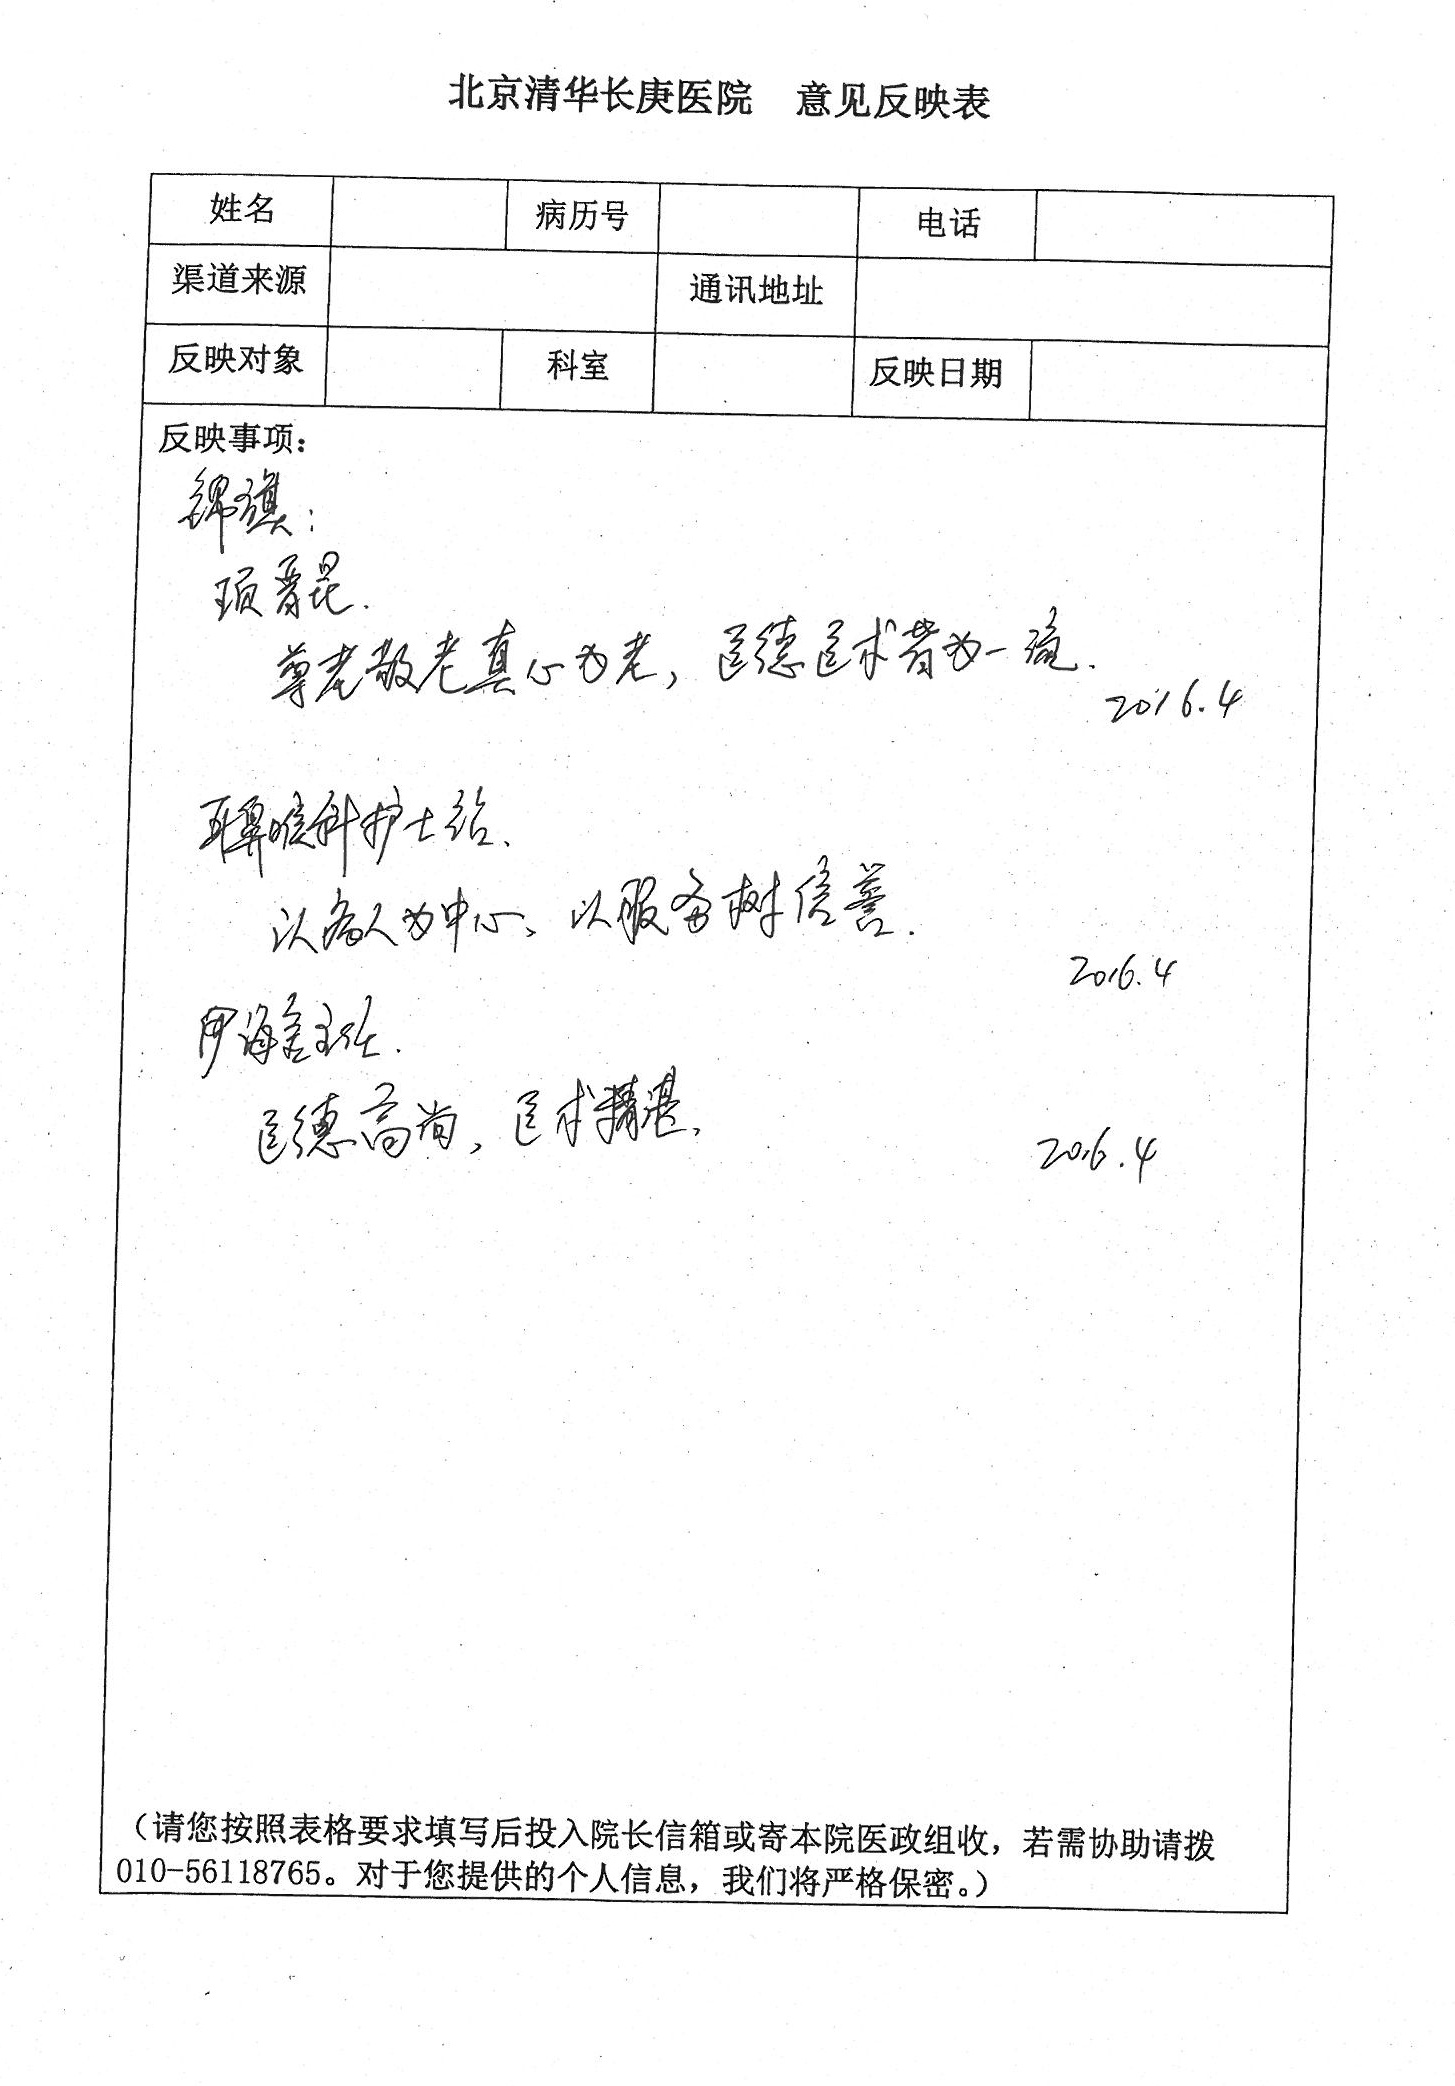 北京清华长庚医院 意见反映表
姓名 病历号 电话
渠道来源 通讯地址
反映对象 科室 反映日期
反映事项：
锦旗：
项晋昆.
尊老敬老真心为老，医德医术皆为一流.
2016.4
耳鼻喉科护士站、
以病人为中心、以服务树信誉.
2016.4
海主任.
医德高尚，医术精湛、
2016.4
（请您按照表格要求填写后投入院长信箱或寄本院医政组收，若需协助请拨
010-56118765。对于您提供的个人信息，我们将严格保密。）